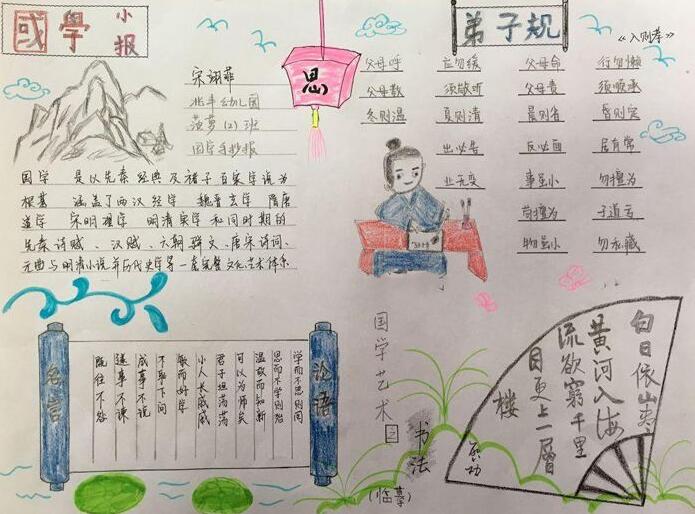 国学
小报
弟子规
《入则孝》
思
北丰幼儿园
菠萝(2)班
国学手抄报
父母呼 应勿缓 父母命 行勿懒
父母教 须敬听 父母责 须顺承
冬则温 夏则清 晨则省 昏则定
出必告 反必面 居有常
业无变 事虽小 勿擅为
苟擅为 子道亏
物虽小 勿私藏
国学 是以先秦经典及诸子百家学说为
根基 涵盖了两汉经学 魏晋玄学 隋唐
道学 宋明理学 明清实学和同时期的
先秦诗赋、汉赋、六朝骈文、唐宋诗词、
元曲与明清小说并历代史学等一套完整文化艺术体系
论语
学而不思则罔
思而不学则殆
温故而知新
可以为师矣
君子坦荡荡
小人长戚戚
敏而好学
不耻下问
成事不说
遂事不谏
既往不咎
名言
国学艺术之
书法
(临摹)
白日依山尽
黄河入海
流欲窮千里
目更上一層
楼
启功